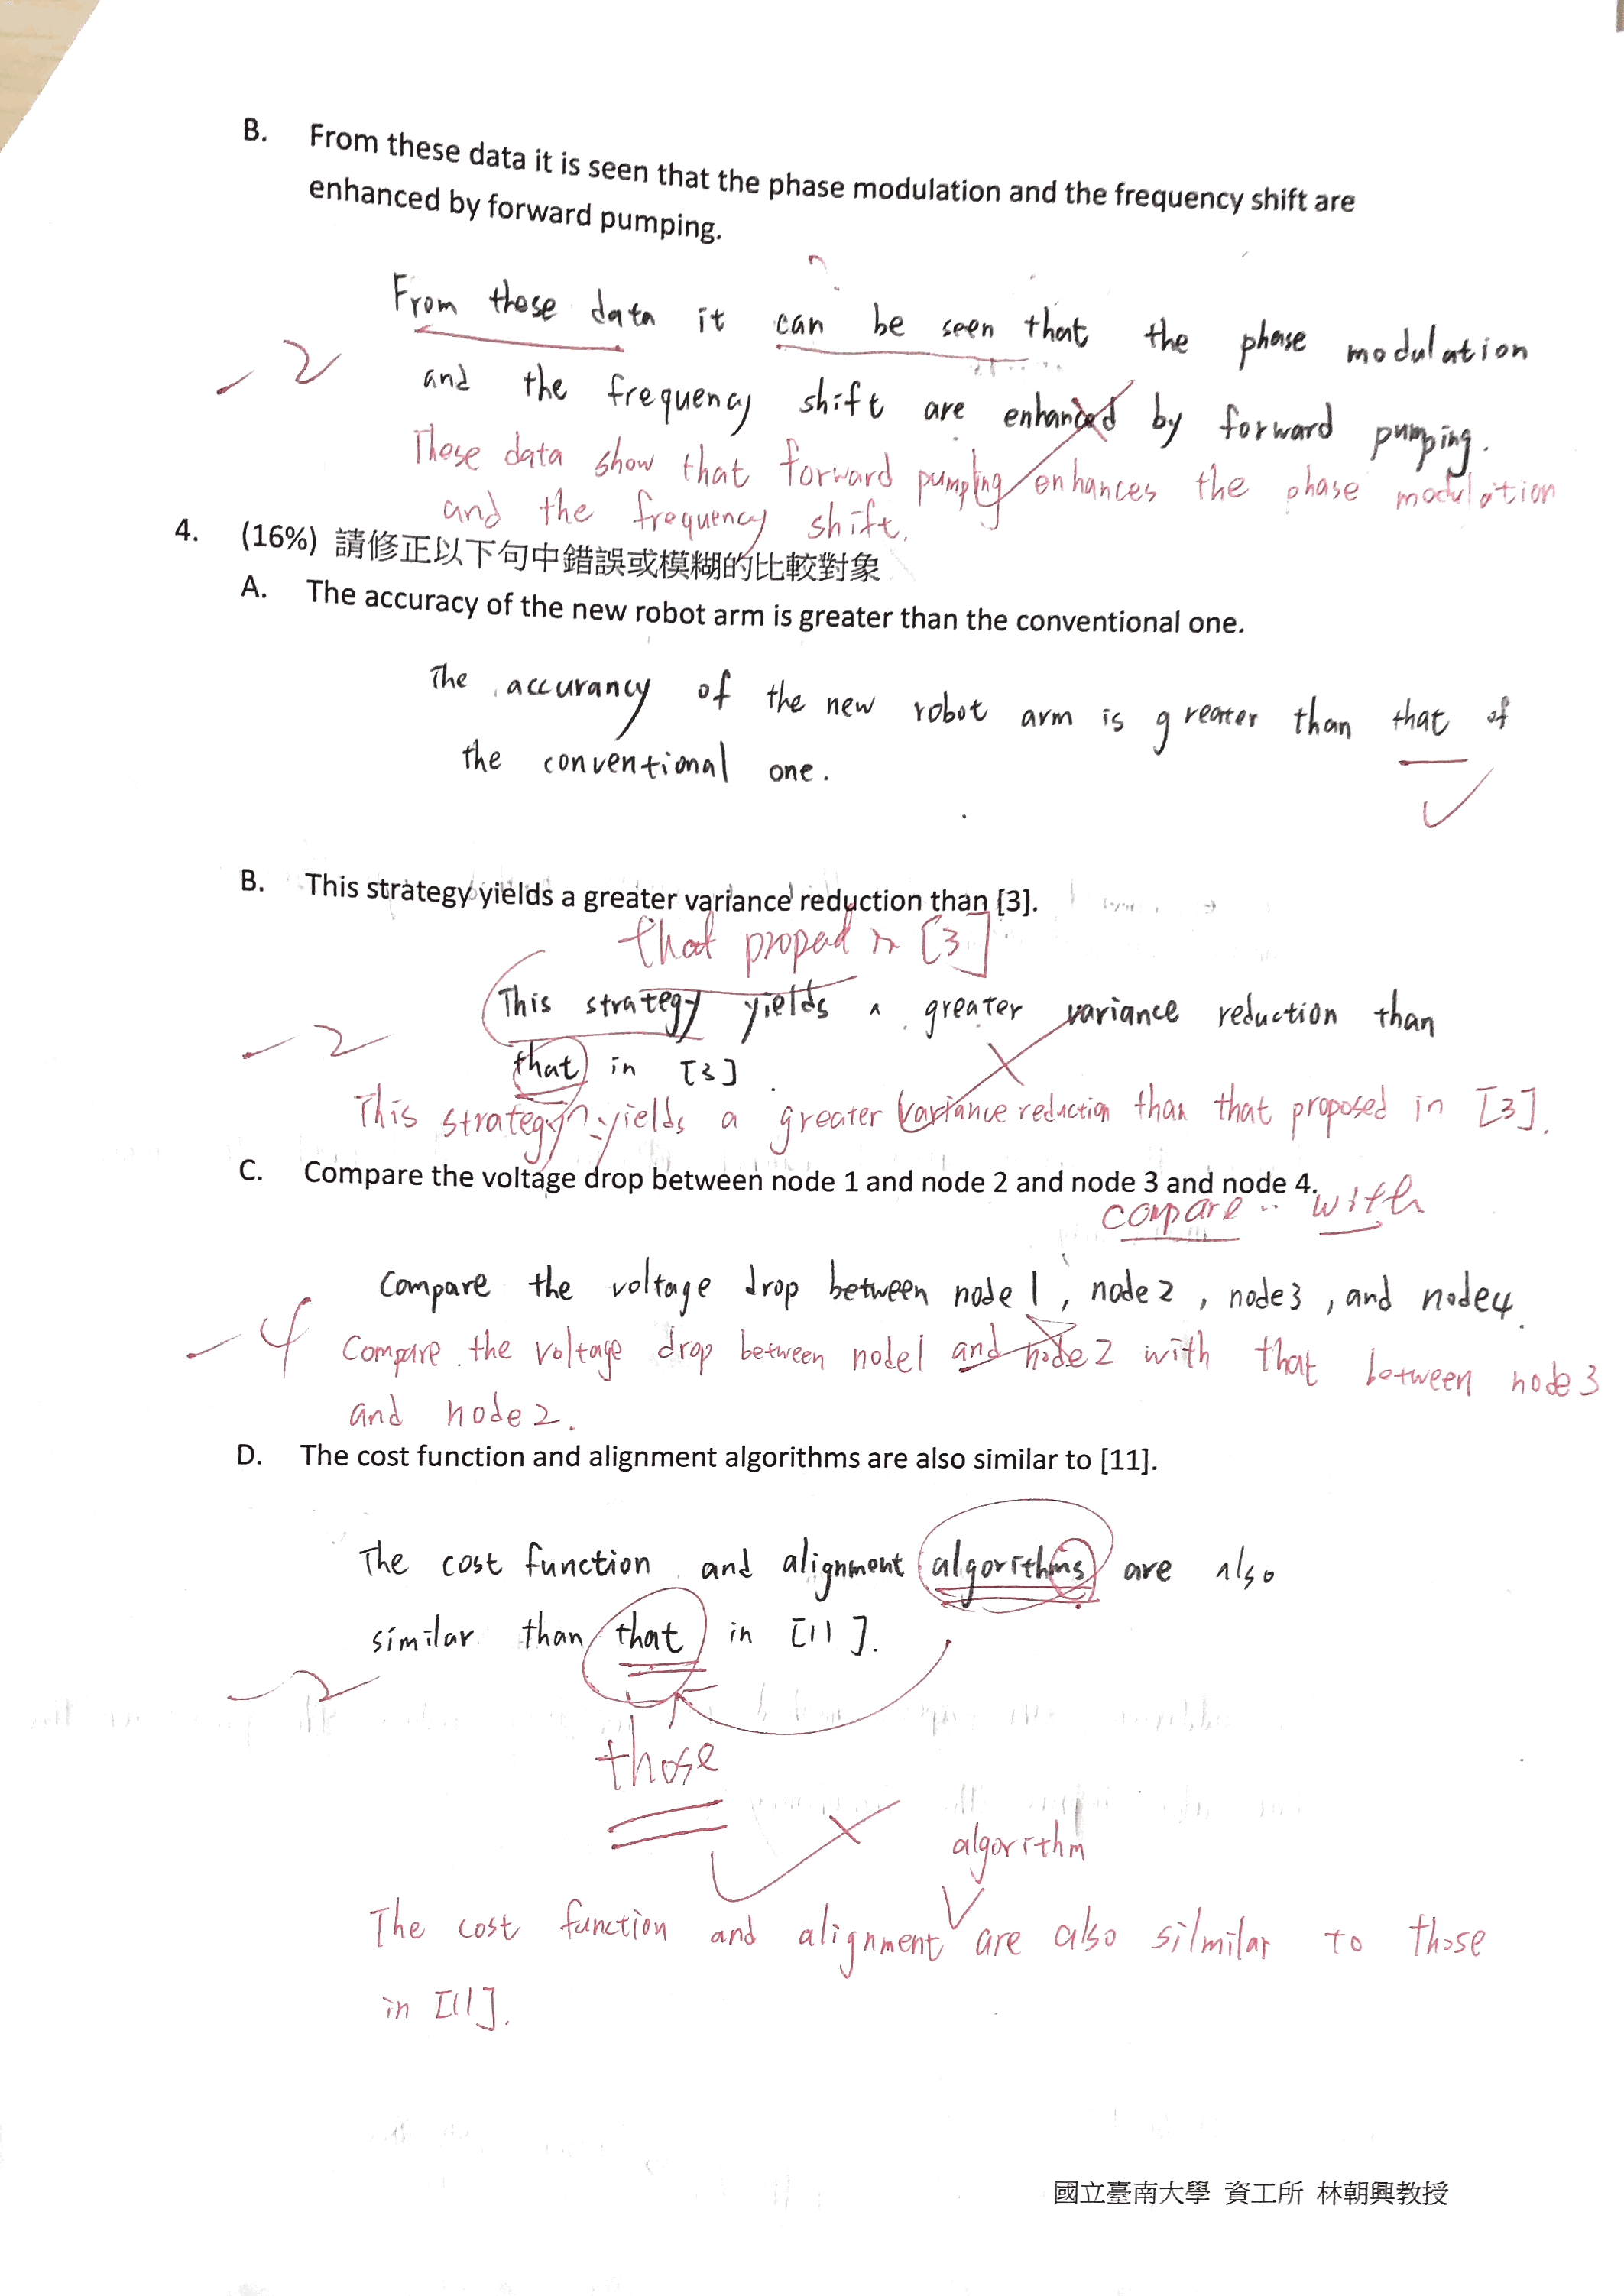 B. From these data it is seen that the phase modulation and the frequency shift are
enhanced by forward pumping.
From these data it can be seen that the phase modulation
-2
and the frequency shift are enhanced by forward pumping.
These data show that forward pumping enhances the phase modulation
and the frequency shift.
4. (16%) 請修正以下句中錯誤或模糊的比較對象
A. The accuracy of the new robot arm is greater than the conventional one.
The accurancy of the new robot arm is greater than that of
the conventional one.
B. This strategy yields a greater variance reduction than [3].
that in [3]
This strategy yields a greater variance reduction than
-2
that in [3]
This strategy yields a greater variance reduction than that proposed in [3].
C. Compare the voltage drop between node 1 and node 2 and node 3 and node 4.
compare .. with
Compare the voltage drop between node 1, node2, node3, and node4.
-4
Compare the voltage drop between node1 and node2 with that between node3
and node2.
D. The cost function and alignment algorithms are also similar to [11].
The cost function and alignment algorithms are also
similar than that in [11].
-2
those
algorithm
The cost function and alignment are also silmilar to those
in [11].
國立臺南大學 資工所 林朝興教授